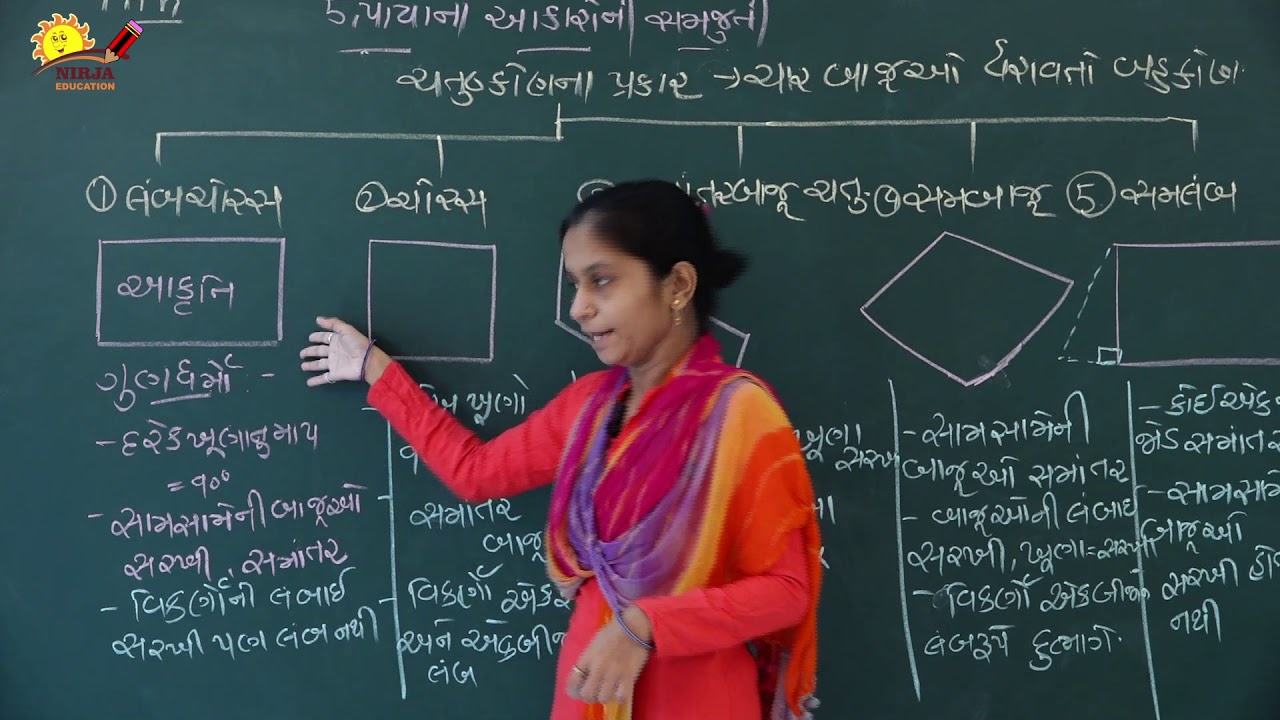 NIRJA
EDUCATION
૬. પાયાના આકારોની સમજુતી
ચતુષ્કોણના પ્રકાર → ચાર બાજૂઓ ધરાવતો બહુકોણ
① લંબચોરસ
② ચોરસ
તરબાજૂ ચતુ.
સમબાજૂ
⑤ સમલંબ
આકૃતિ
ગુણધર્મો :-
- દરેક ખૂણાનુ માપ
= ૯૦°
- સામસામેની બાજૂઓ
સરખી, સમાંતર
- વિકર્ણોની લંબાઈ
સરખી પણ લંબ નથી
ખૂણો
સમાંતર
બાજૂ
વિકર્ણો
અને એકબીજા
લંબ
ખૂણા
સરખ
- સામસામેની
બાજૂઓ સમાંતર
- બાજૂઓની લંબાઇ
સરખી, ખૂણા = સરખા
- વિકર્ણો એકબીજાને
લંબરૂપે દુભાગે.
- કોઈ એક
જોડ સમાંતર
- સામસામે
બાજૂઓ
સરખી હો
નથી